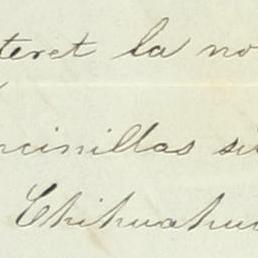 teret la no
ncinillas si
Chihuahua